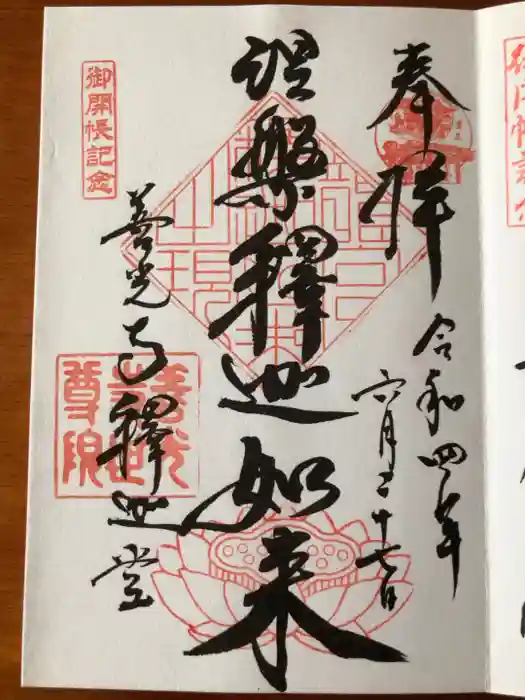 奉拝
令和四年
六月二十七日
涅槃釋迦如来
善光寺釋迦堂
御開帳記念
善光
寺世
尊院